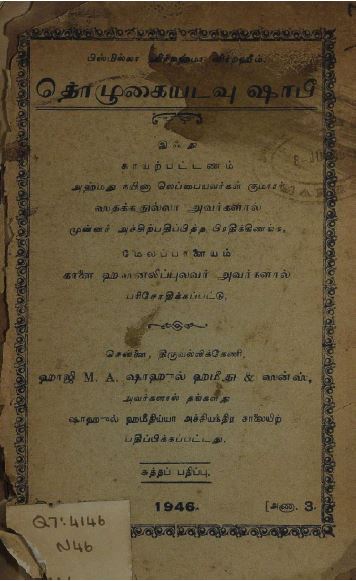 பிஸ்மில்லா
தொழுகையடவு ஷாபி
இஃது
காயற்பட்டணம்
அஹ்மது நயினா லெப்பையவர்கள் குமாரர்
ஸதக்கதுல்லா அவர்களால்
முன்னர் அச்சிற்பதிப்பித்த பிரதிக்கிணங்க,
மேலப்பாளையம்
காளை ஹஸனலிப்புலவர் அவர்களால்
பரிசோதிக்கப்பட்டு,
சென்னை, திருவல்லிக்கேணி,
ஹாஜி M. A. ஷாஹுல் ஹமீது & ஸன்ஸ்,
அவர்களால் தங்களது
ஷாஹுல் ஹமீதிய்யா அச்சியந்திர சாலையிற்
பதிப்பிக்கப்பட்டது.
சுத்தப் பதிப்பு.
1946. [அணா. 3.
Q7:4146
N46